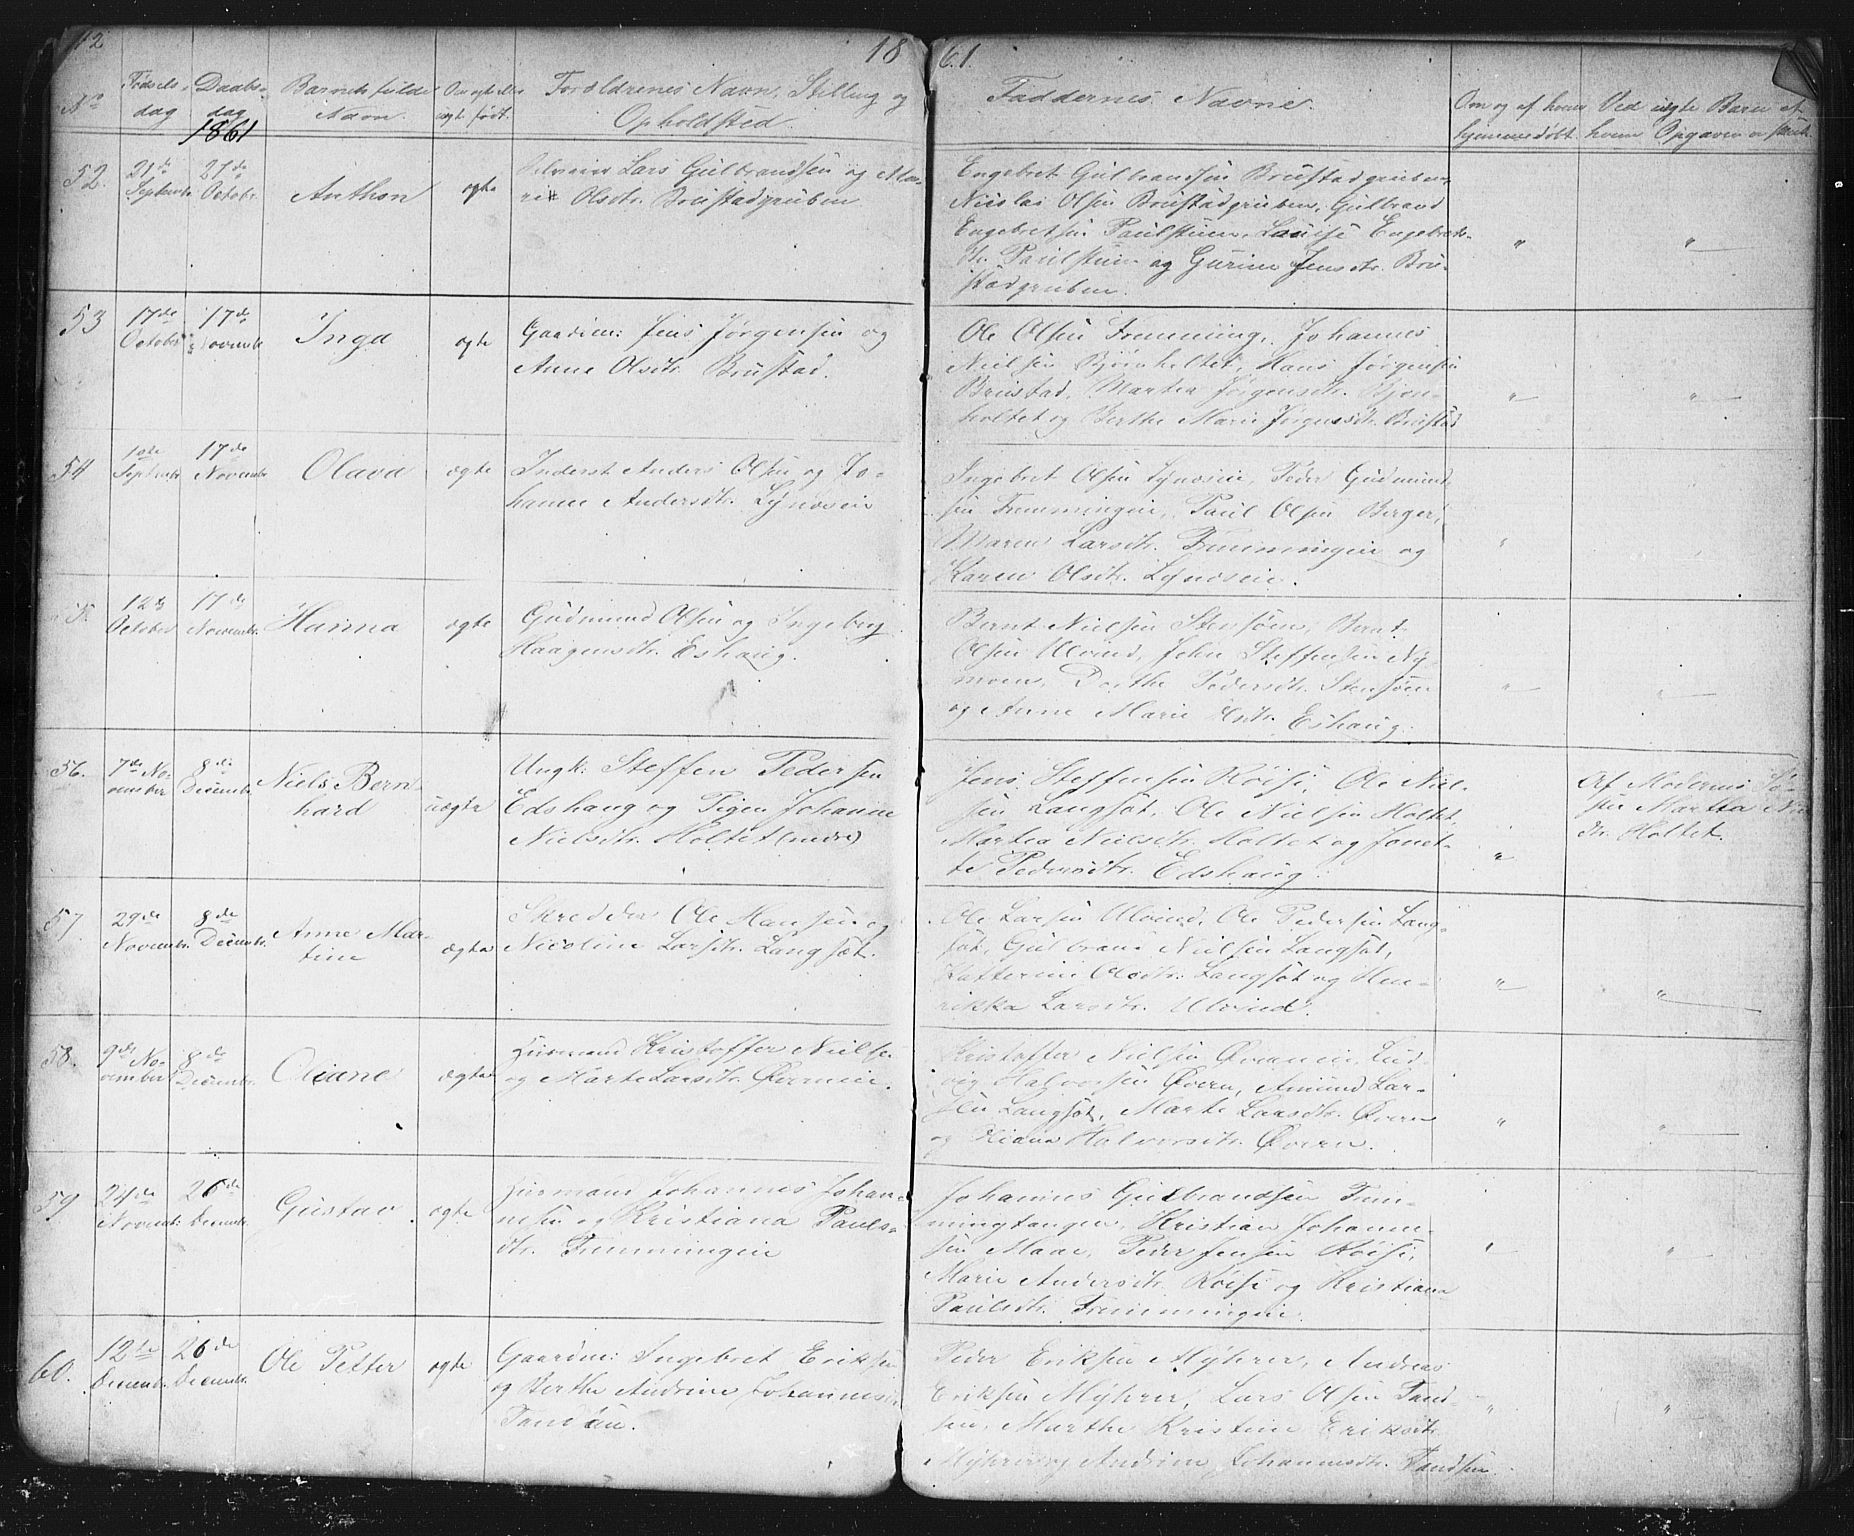 12
18 61.
No Fødsels dag Daabs dag Barnets fulde Navn. Om ægte eller uægte født. Forældrenes Navn, Stilling og Opholdsted. Faddernes Navne. Om og af hvem hjemmedøbt. Ved uægte Barn af hvem Opgaven er
1861
52. 21de September 27de Octobr. Anthon ægte Lars Gulbrandsen og Ma-
rie Olsdtr. Brustadgruben
Engebret Gulbrandsen Brustadgruben,
Nicolai Olsen Brustadgruben, Gulbrand
Engebretsen Paulstuen, Louise Engebrets-
dtr. Paulstuen og Gurine Jensdtr. Bru-
stadgruben.
53 17de October 17de Novembr. Inga ægte Gaardm: Jens Jørgensen og
Anne Olsdtr. Brustad.
Ole Olsen Fremming, Johannes
Nielsen Bjørnholtet, Hans Jørgensen
Brustad, Marthea Jørgensdtr. Bjørn-
holtet og Berthe Marie Jørgensdtr. Brustad
54 1ste Septembr. 17de Novembr. Olava ægte Inderst Anders Olsen og Jo-
hanne Andersdtr. Lynæseie
Ingebret Olsen Lynæseie, Peder Gudmund-
sen Fremmingeie, Paul Olsen Berger,
Maren Larsdtr. Fremmingeie og
Karen Olsdtr. Lynæseie.
55. 12te October 17de Novembr. Hanna ægte Gudmund Olsen og Ingeborg
Haagensdtr. Eshaug.
Bernt Nielsen Stensøen, Bernt
Olsen Ulvind, John Steffensen Ny-
moen, Dorthe Pedersdtr. Stensøen
og Anne Marie Olsdtr. Eshaug.
56. 7de No-
vember 8de Decembr. Niels Bern-
hard uægte Ungk: Steffen Pedersen
Edshaug og Pigen Johanne
Nielsdtr. Holtet (nedre)
Jens Steffensen Röise, Ole Niel-
sen Langsæt, Ole Nielsen Holtet,
Marthea Nielsdtr. Holtet og Jonet-
te Pedersdtr. Edshaug.
Af Moderens Sø-
ster Marthea
dtr. Holtet.
57. 29de Novembr. 8de Decembr. Anne Mar-
tine ægte Skredder Ole Hansen og
Nicoline Larsdtr. Langsæt.
Ole Larsen Ulvind, Ole Pedersen Lang-
sæt, Gulbrand Nielsen Langsæt,
Katterine Olsdtr. Langsæt og Hen-
rikka Larsdtr. Ulvind.
58. 9de No-
vember 8de Decembr. Oliane ægte Husmand Kristoffer Niels
og Marte Larsdtr. Øverneie.
Kristoffer Nielsen Øverneie, Lud-
vig Halvorsen Øvern, Amund Lar-
sen Langsæt, Marte Larsdtr. Øvern
og Oliana Halvorsdtr. Øvern.
59 24de Novembr. 26de Decembr. Gustav. ægte Husmand Johannes Johan-
nesen og Kristiana Pauls-
dtr. Fremmingeie
Johannes Gulbrandsen Frem-
mingtangen, Kristian Johanne-
sen Maae, Peder Jensen Röise,
Marie Andersdtr. Röise og Kristiane
Paulsdtr. Fremmingeie.
60. 12te Decembr. 26de Decembr. Ole Petter ægte Gaardm: Ingebret Eriksen
og Berthe Andrine Johannesdtr.
Tandsæu.
Peder Eriksen Myhrer, Andreas
Eriksen Myhrer, Lars Olsen Tand-
sen, Marthe Kristine Eriksdtr.
Myhrer og Andrine Johannesdtr. Tandsen.